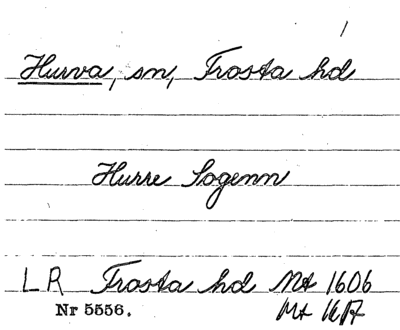 1
Hurva, sn, Frosta hd
Hurre Sogenn
LR Frosta hd Mt 1606
Nr 5556. Mt 1617